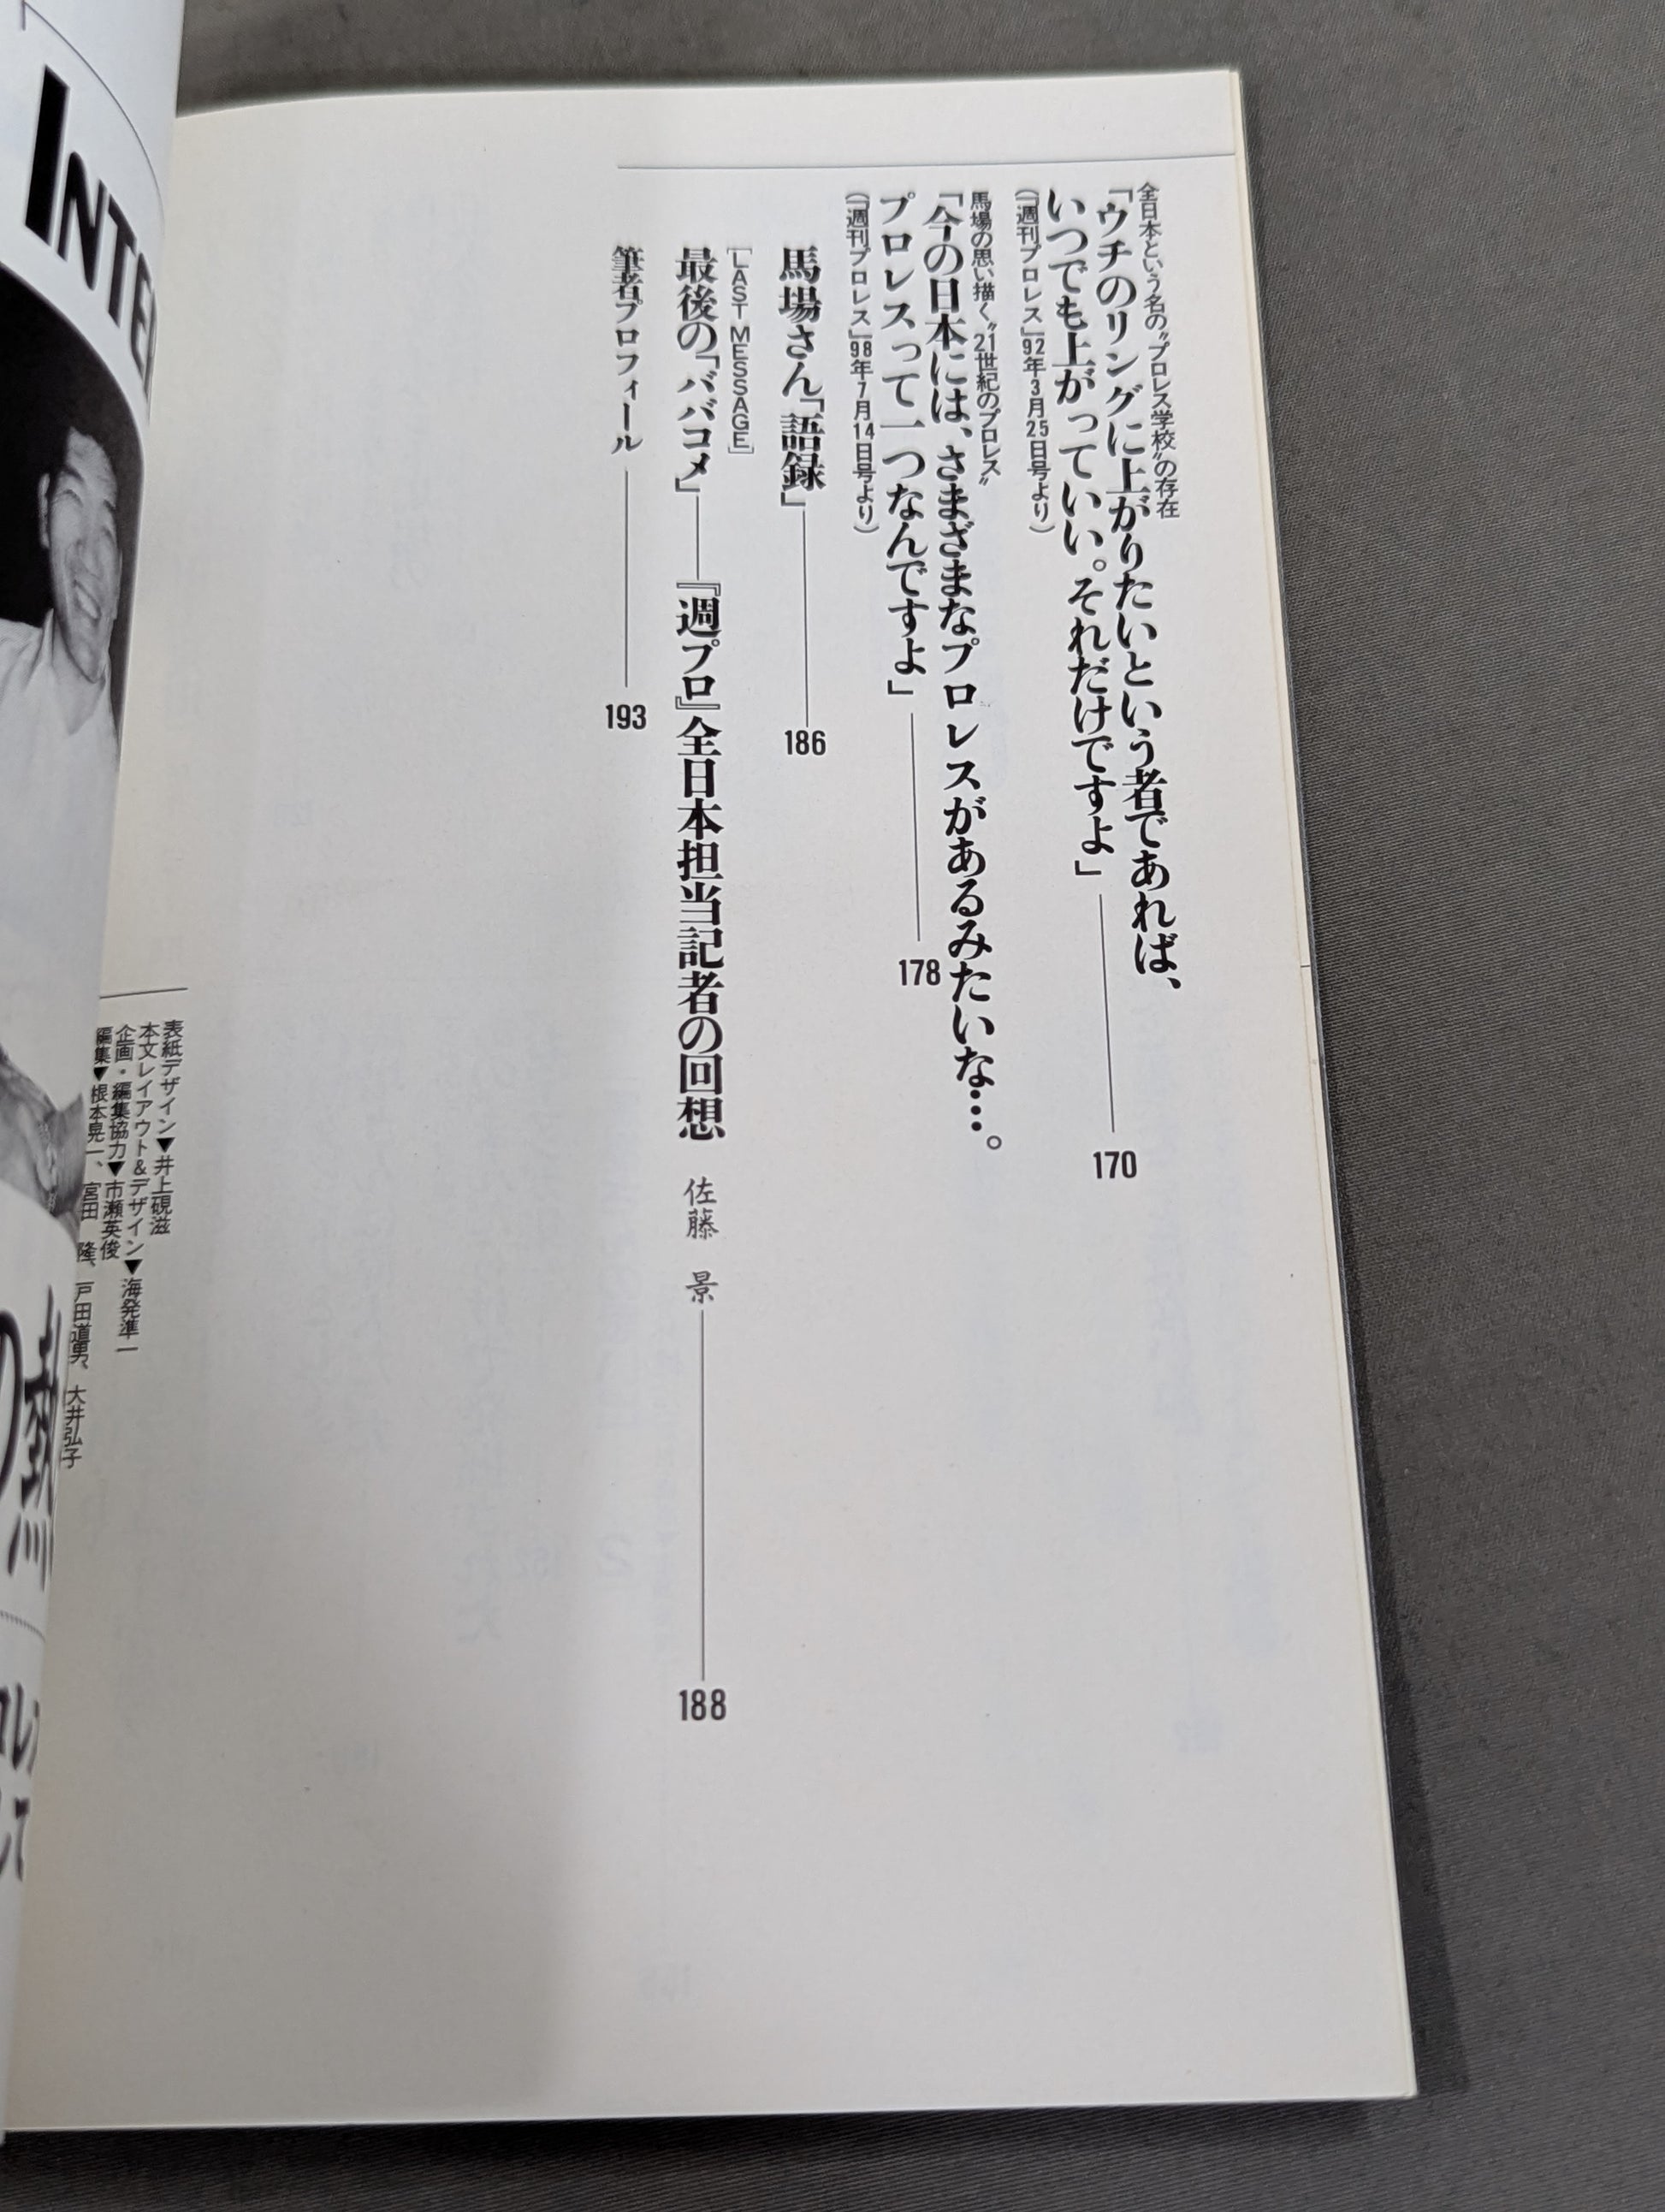 全日本という名の〝プロレス学校〟の存在
「ウチのリングに上がりたいという者であれば、
いつでも上がっていい。それだけですよ」 170
(『週刊プロレス』92年3月25日号より)
馬場の思い描く〝21世紀のプロレス〟
「今の日本には、さまざまなプロレスがあるみたいな…。
プロレスって一つなんですよ」 178
(『週刊プロレス』98年7月14日号より)
馬場さん「語録」 186
[LAST MESSAGE]
最後の「ババコメ」――『週プロ』全日本担当記者の回想 佐藤 景 188
筆者プロフィール 193
表紙デザイン▼井上硯滋
本文レイアウト&デザイン▼海発準一
企画・編集協力▼市瀬英俊
編集▼根本晃一、宮田 隆、戸田道男、大井弘子
INTE
の